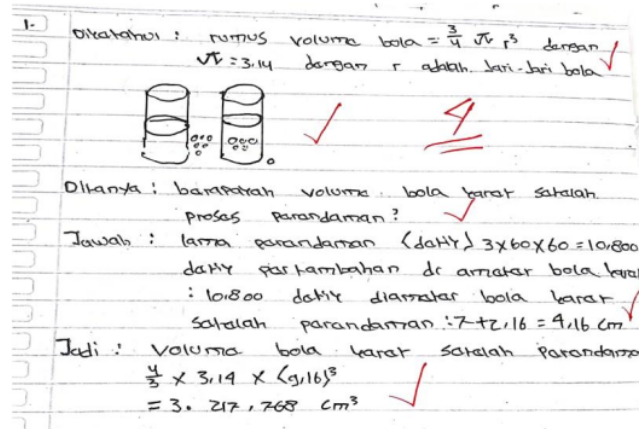 1. Diketahui : rumus volume bola = 3/4 π r³ dengan
π = 3,14 dengan r adalah Jari-Jari bola
4
Ditanya : berapakah volume bola karet setelah
proses perendaman?
Jawab : lama perendaman (detik) 3x60x60 = 10.800
detik pertambahan diameter bola karet
: 10.800 detik diameter bola karet
setelah perendaman : 7+2,16 = 9,16 cm
Jadi : volume bola karet setelah perendama
4/3 x 3,14 x (9,16)³
= 3. 217, 768 cm³